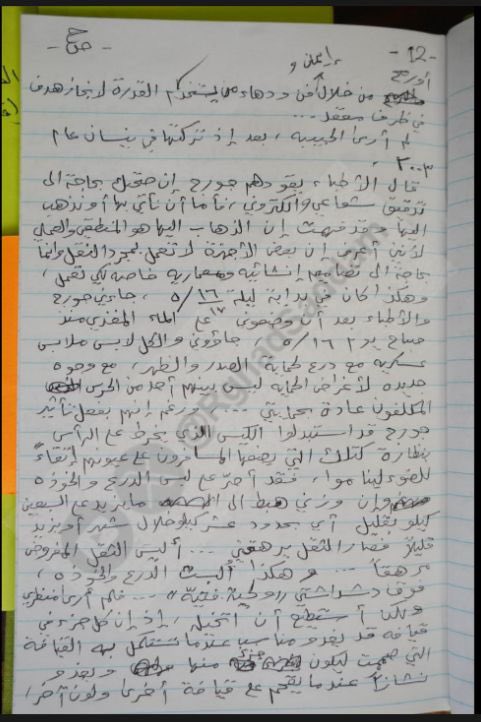 - 12 -
- ح ص -
إيمان و
أو رح من خلال فن ودهاء من يستخدم القدرة لإنجاز هدف
في ظرف معقد ...
لم أرى الحبيبه، بعد إذ تركتها في نيسان عام
٢٠٠٣.
قال الأطباء يقودهم جورج إن صحتك بحاجة الى
تدقيق شعاعي وألكتروني، فأما أن نأتي بها أو نذهب
اليها وقد فهمت إن الذهاب اليها هو المنطقي والعملي
لأنني أعرف إن بعض الأجهزة لا تعمل بمجرد النقل وإنما
بحاجة الى تصاميم إنشائيه ومعماريه خاصه لكي تعمل،
وهكذا كان في بداية ليلة ١٦/٥ ، جاءني جورج
١٧
والأطباء بعد أن وضعوني على الماء المغذي منذ
صباح يوم ١٦/٥ جاؤوني والكل لابس ملابس
عسكريه مع درع لحماية الصدر والظهر، مع وجوه
جديده لأغراض الحمايه ليس بينهم أحد من الحرس
المكلفون عادة بحمايتي .... ورغم إنهم بفعل تأثير
جورج قد استبدلوا الكيس الذي يخرط على الرأس
بنظارة كتلك التي يضعها المسافرون على عيونهم إتقاءً
للضوء ليناموا، فقد أصر على لبس الدرع والخوذه
وإن وزني هبط الى ما يزيد عن السبعين
كيلو بقليل أي بحدود عشر كيلو خلال شهر أو يزيد
قليلاً فصار الثقل يرهقني ... أليس الثقل المفروض
مرهقاً ... وهكذا ألبست الدرع والخوذه،
فوق دشداشتي ... فلم أرى منظري
ولكن أستطيع أن أتخيله، إذ إن كل جزء في
قيافه قد يغدو مناسباً عندما تستكمل به القيافة
التي صممت ليكون جزء منها ويغدو
نشازاً عندما يقحم على قيافة أخرى ولون آخر،
@RghadSaddam